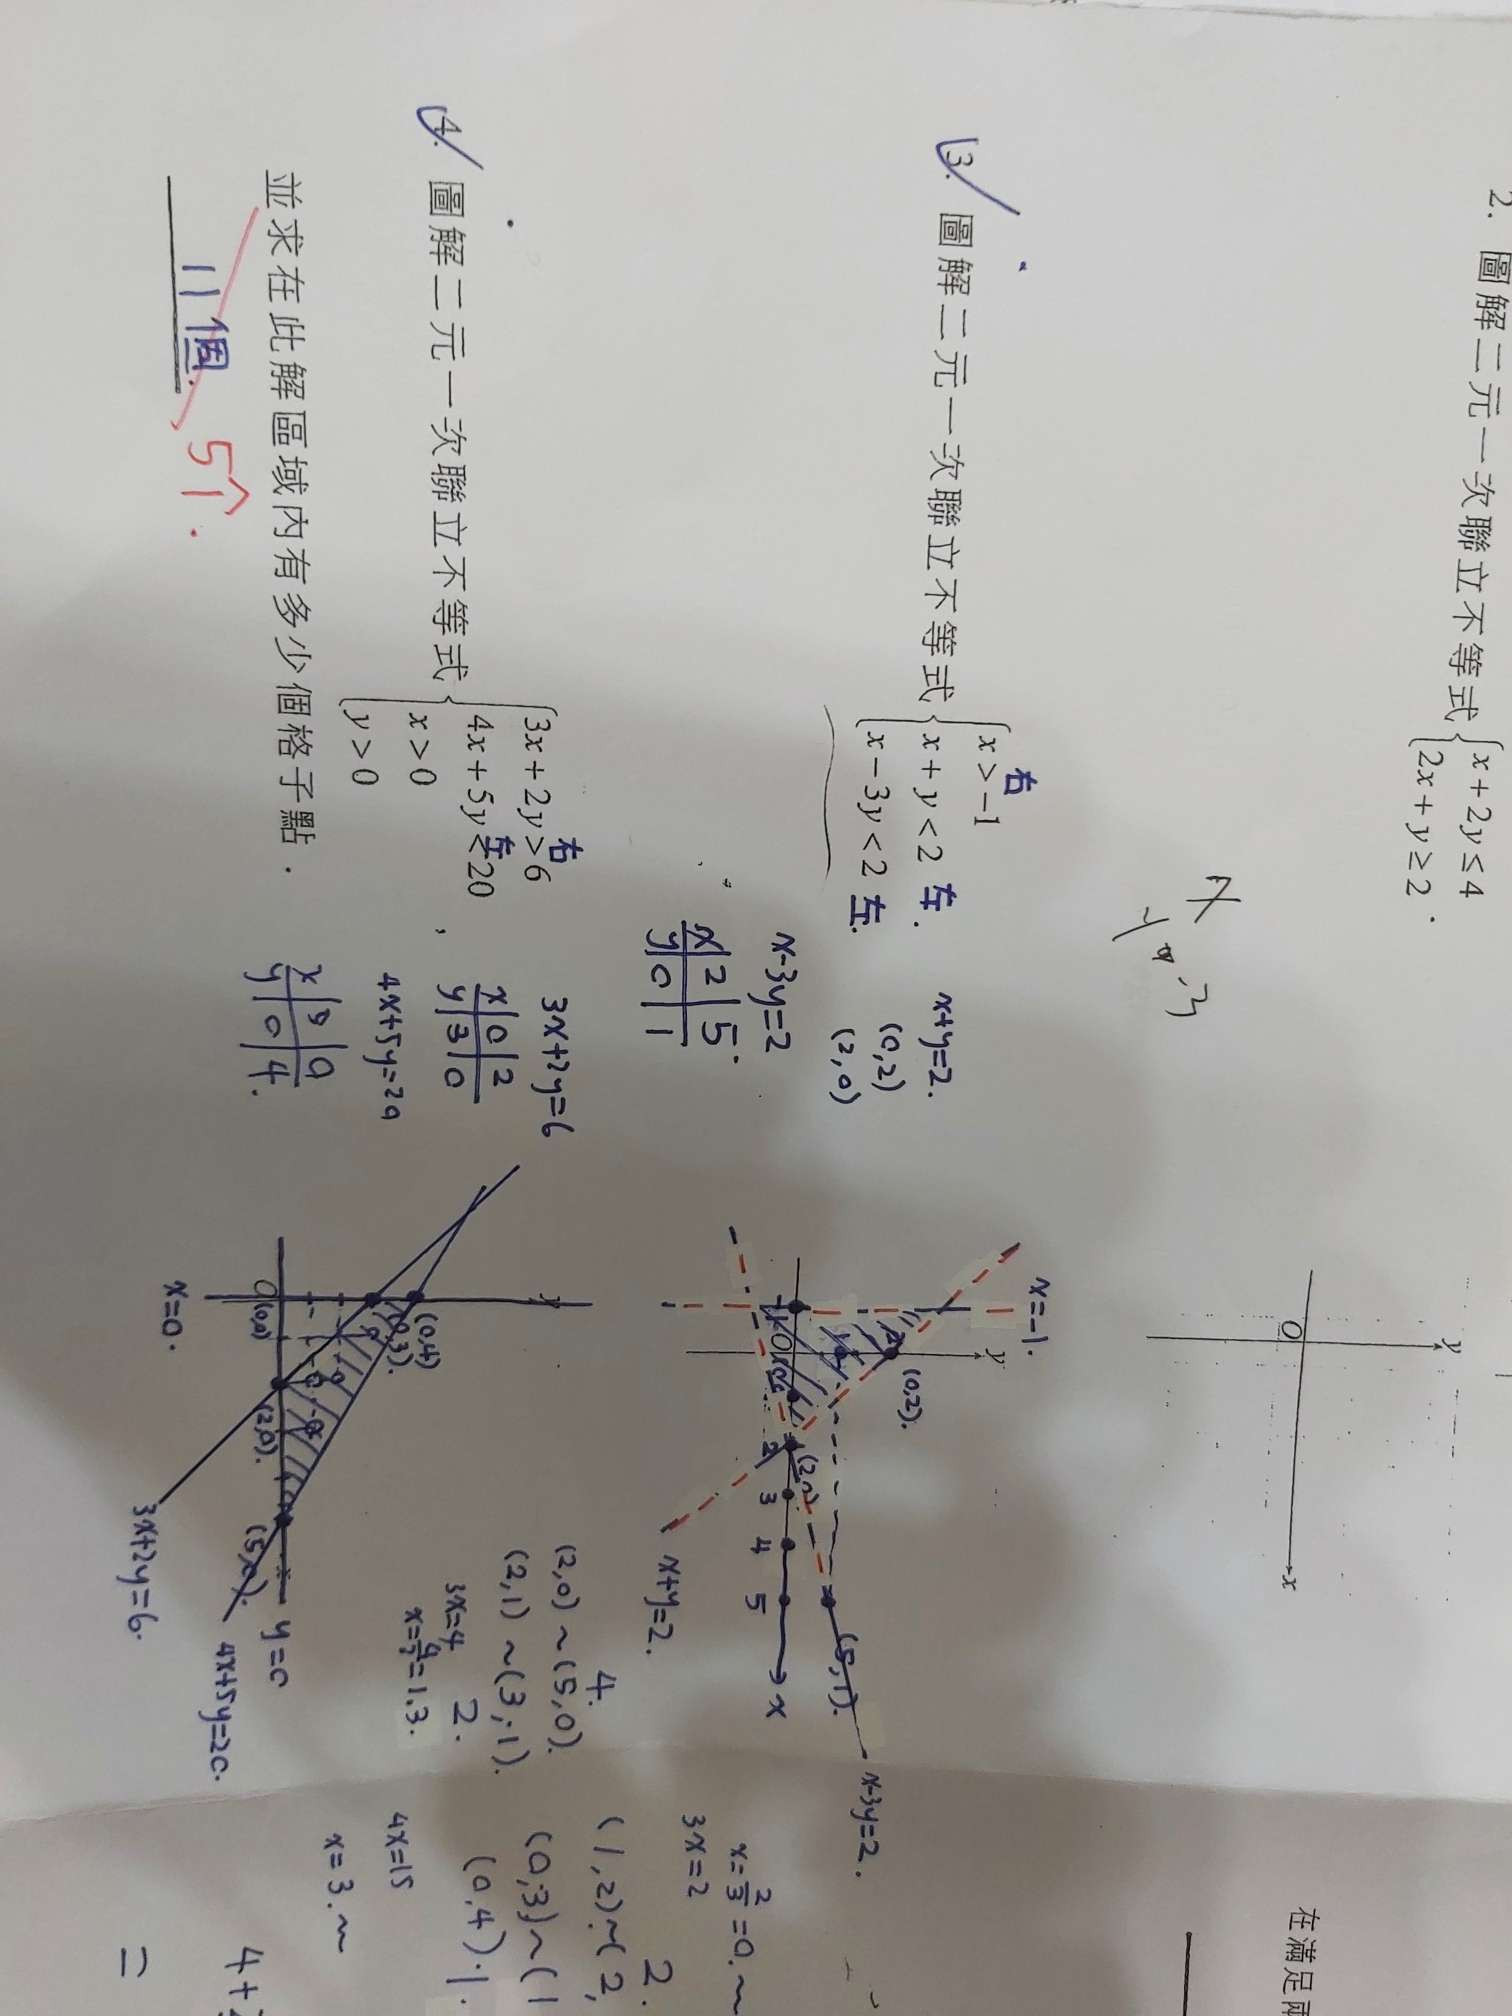 2. 圖解二元一次聯立不等式 { x + 2y ≤ 4
2x + y ≥ 2 .
y
O
x
在滿足兩
3. 圖解二元一次聯立不等式 { x > -1 右
x + y < 2 左.
x - 3y < 2 左.
x+y=2.
(0,2)
(2,0)
x-3y=2
x 2 5
y 0 1
x=-1.
y
(0,2).
O
2
3
4
5
x
(5,1).
x+y=2.
x-3y=2.
4. 圖解二元一次聯立不等式 { 3x + 2y > 6 右
4x + 5y < 20 左
x > 0
y > 0
並求在此解區域內有多少個格子點.
11個. 5個.
3x+2y=6
x 0 2
y 3 0
4x+5y=20
x 5 0
y 0 4.
y
(0,4)
(0,3).
O
(0,0)
(2,0).
(5,0).
x=0.
y=0
3x+2y=6.
4x+5y=20.
4.
(2,0)~(5,0).
(2,1)~(3,1).
2.
3x=4
x=4/3=1.3.
x=2/3=0.~
3x=2
2.
(1,2)~(2,
(0,3)~(1
(0,4).1.
4x=15
x=3.~
4+
=